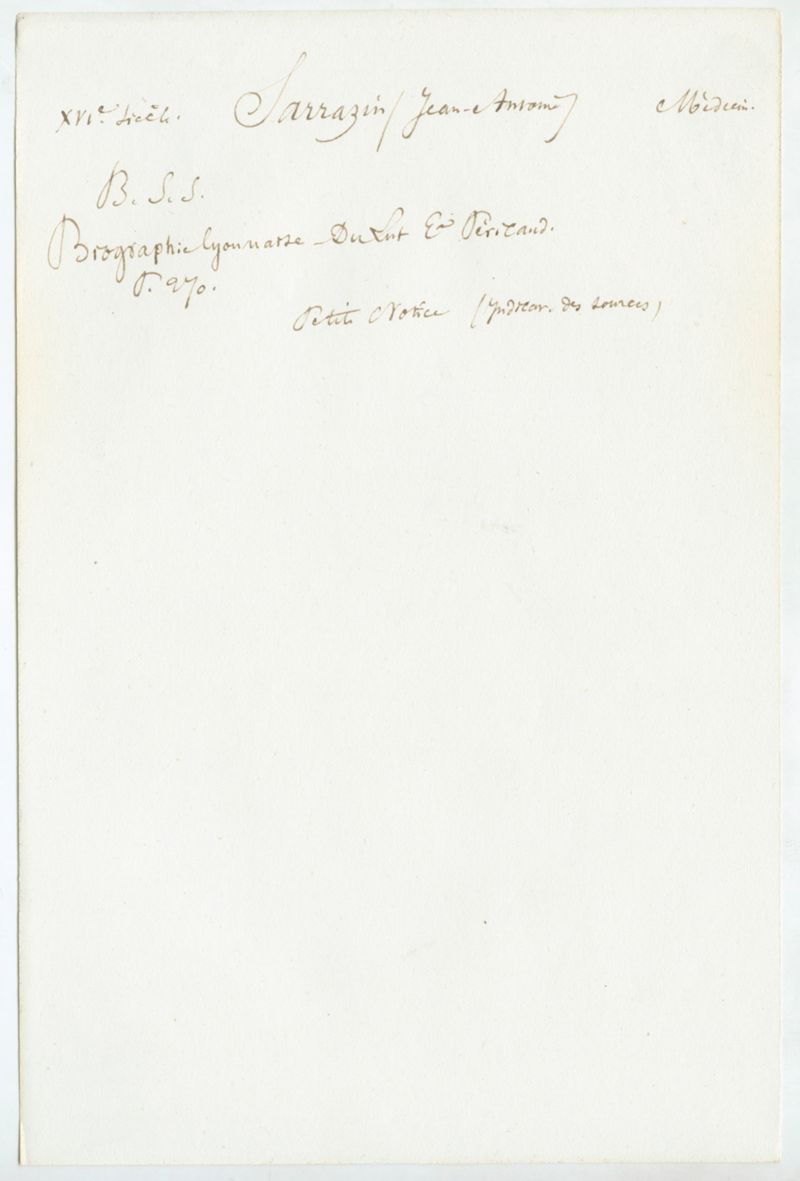 XVIe Siècle. Sarrazin (Jean-Antoine) Médecin.
B. S. S.
Biographie lyonnaise - Du Lut & Péricaud.
P. 270.
Petite Notice (Indicat. des sources)